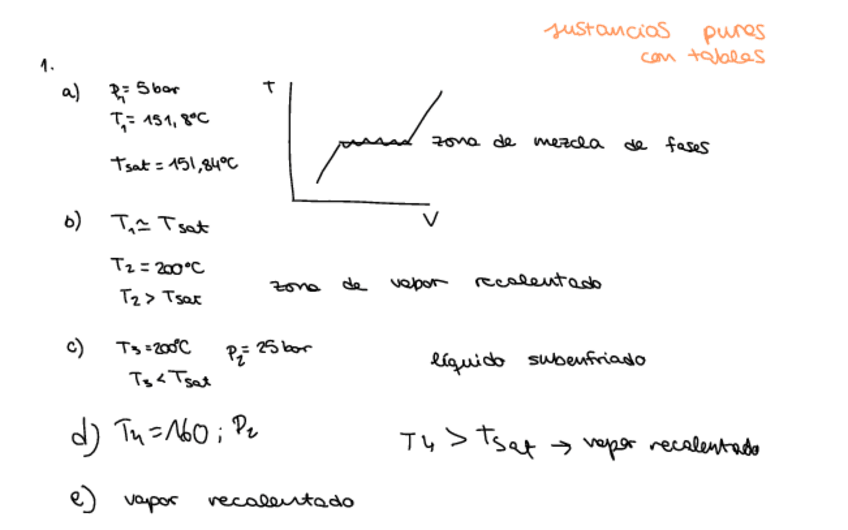 sustancias puras
con tablas
1.
a) P₁= 5 bar
T₁= 151,8°C
Tsat = 151,84°C
T
V
zona de mezcla de fases
b) T₁ ≃ Tsat
T₂ = 200°C
T₂ > Tsat
zona de vapor recalentado
c) T₃ = 200°C P₂= 25 bar
T₃ < Tsat
líquido subenfriado
d) T₄ = 160 ; P₂
T₄ > Tsat → vapor recalentado
e) vapor recalentado